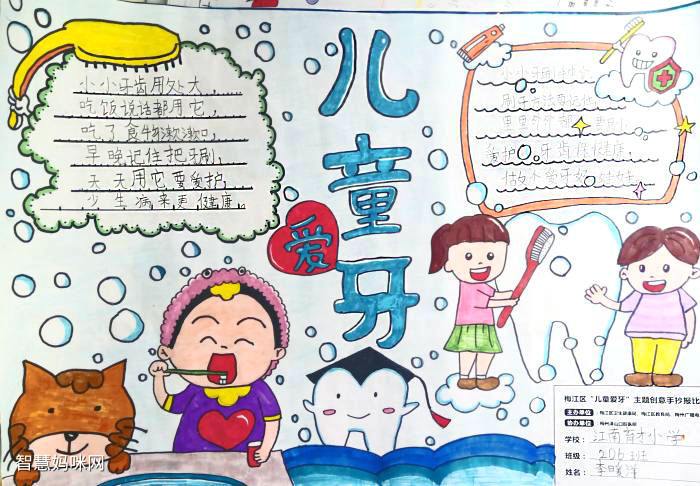 小小牙齿用处大,
吃饭说话都用它,
吃了食物漱漱口,
早晚记住把牙刷,
天天用它要爱护,
少生病来更健康。
儿童爱牙
小小牙刷
刷牙方法要记
里里外外都
爱护牙齿保健康,
梅江区“儿童爱牙”主题创意手抄报比
主办单位 梅江区卫生健康局、梅江区教育局、梅州广播电
协办单位
学校:江南育才小学
班级:206班
姓名:李暖洋
智慧妈咪网